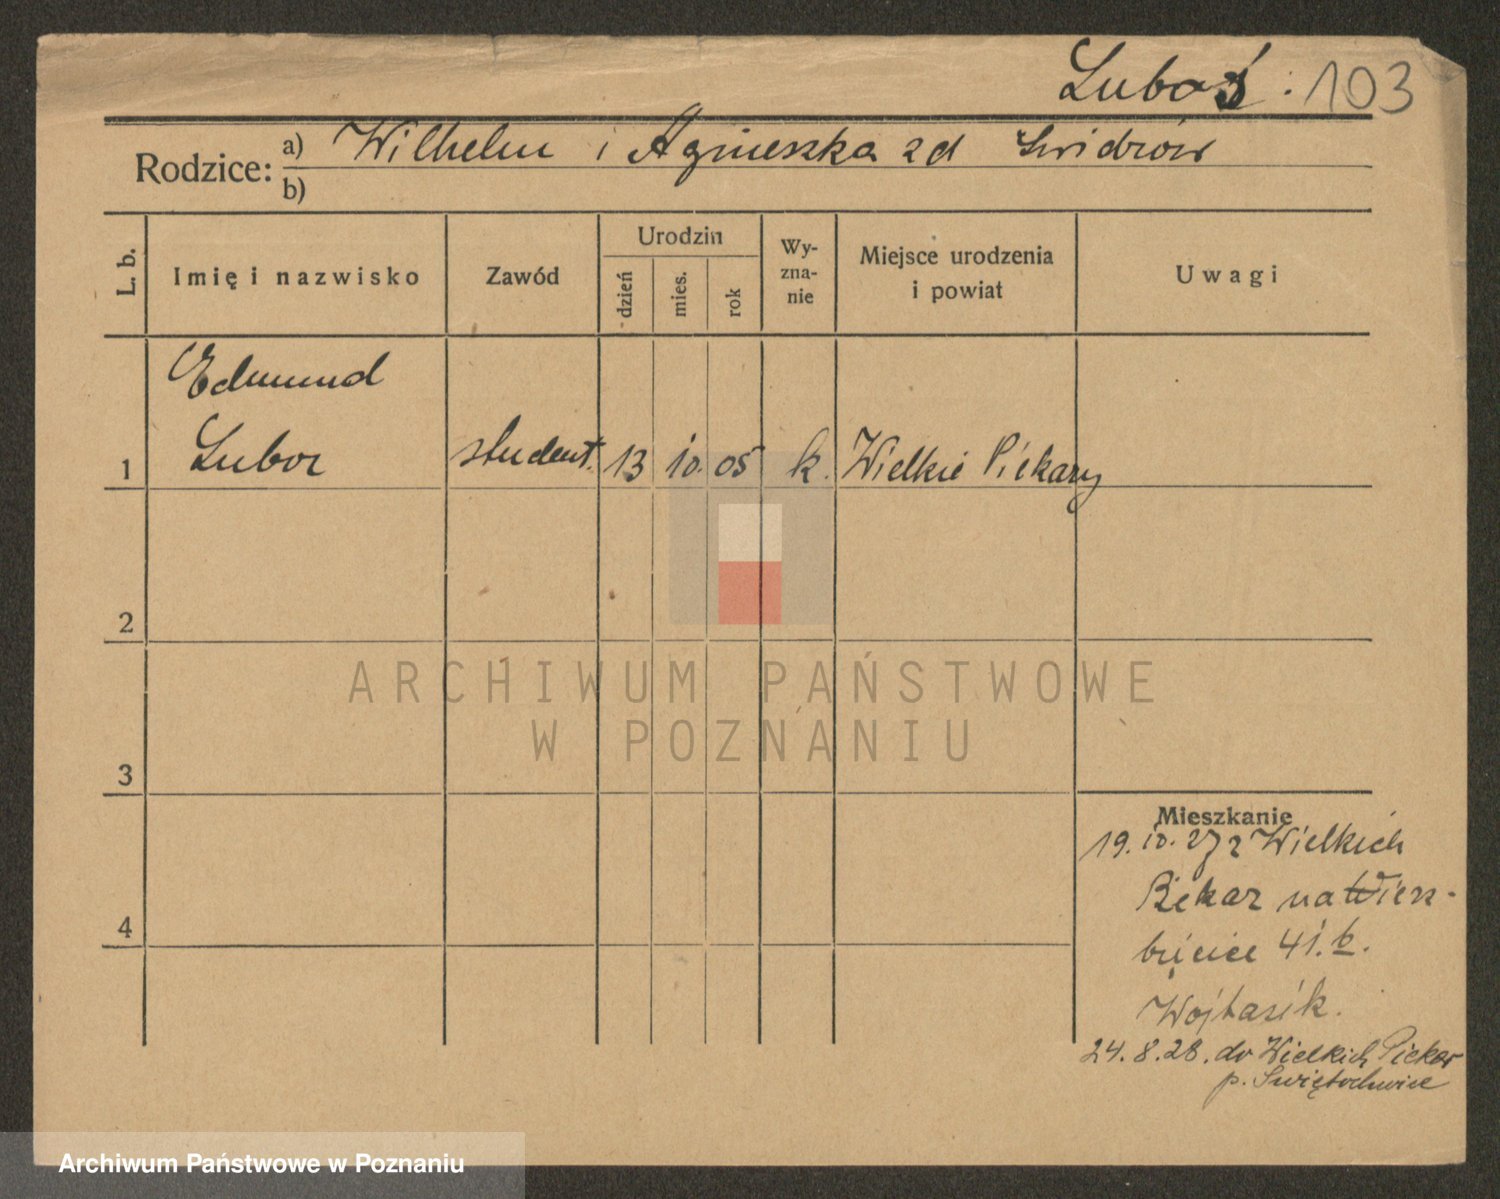 Luboś : 103
Rodzice: a) Wilhelm i Agnieszka zd Świdrów
b)
L. b.
Imię i nazwisko
Zawód
Urodzin
dzień
mies.
rok
Wy-
zna-
nie
Miejsce urodzenia
i powiat
Uwagi
Edmund
1 Lubos student. 13 10. 05 k. Wielkie Piekary
2
3
4
Mieszkanie
19. 10. 27 z Wielkich
Piekar na Wierz-
bięcice 41. b.
Wojtasik.
24. 8. 28. do Wielkich Piekar
p. Świętochwice
ARCHIWUM PAŃSTWOWE
W POZNANIU
Archiwum Państwowe w Poznaniu